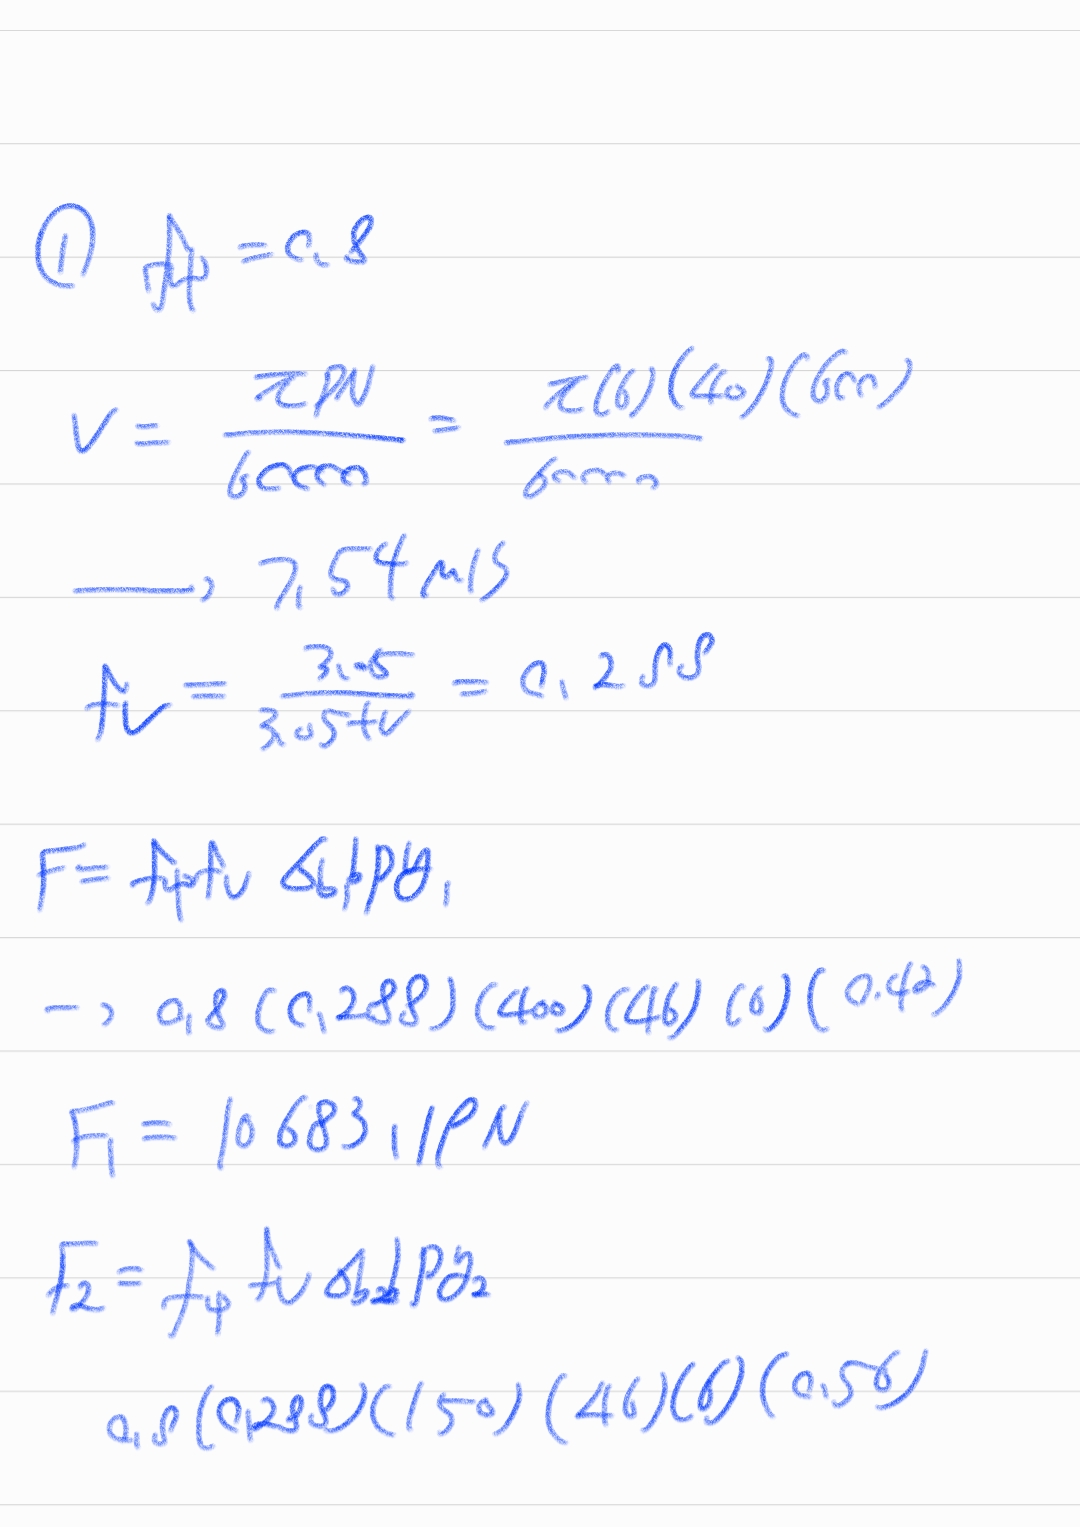 ① fψ = 0.8
V = πDN / 60000 = π(6)(40)(600) / 60000
→ 7.54 m/s
fv = 3.05 / 3.05+V = 0.288
F = fψ fv σb b p y1
→ 0.8 (0.288)(400)(46)(6)(0.42)
F1 = 10683.18 N
F2 = fψ fv σb2 b p y2
0.8 (0.288)(150)(46)(6)(0.56)